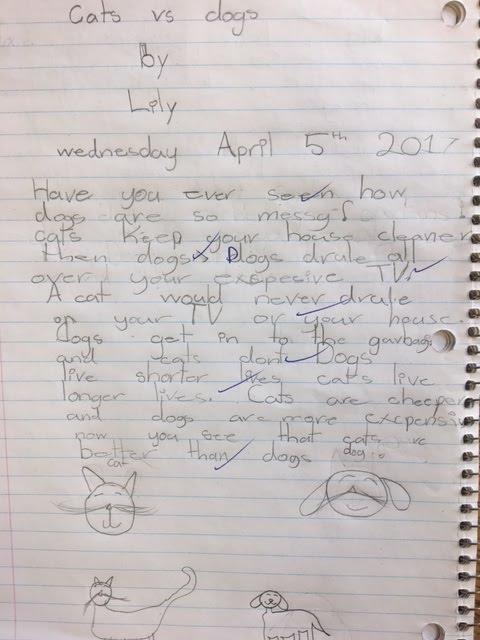 Cats vs dogs
by
Lily
wednesday April 5th 2017
Have you ever seen how
dogs are so messy?
cats keep your house cleaner
then dogs. Dogs drule all
over your exspesive TV!
A cat would never drule
on your TV or your house.
Dogs get in to the garbage
and cats dont. Dogs
live shorter lives cats live
longer lives. Cats are cheeper
and dogs are more expensiv
now you see that cats are
better than dogs
cat
dog